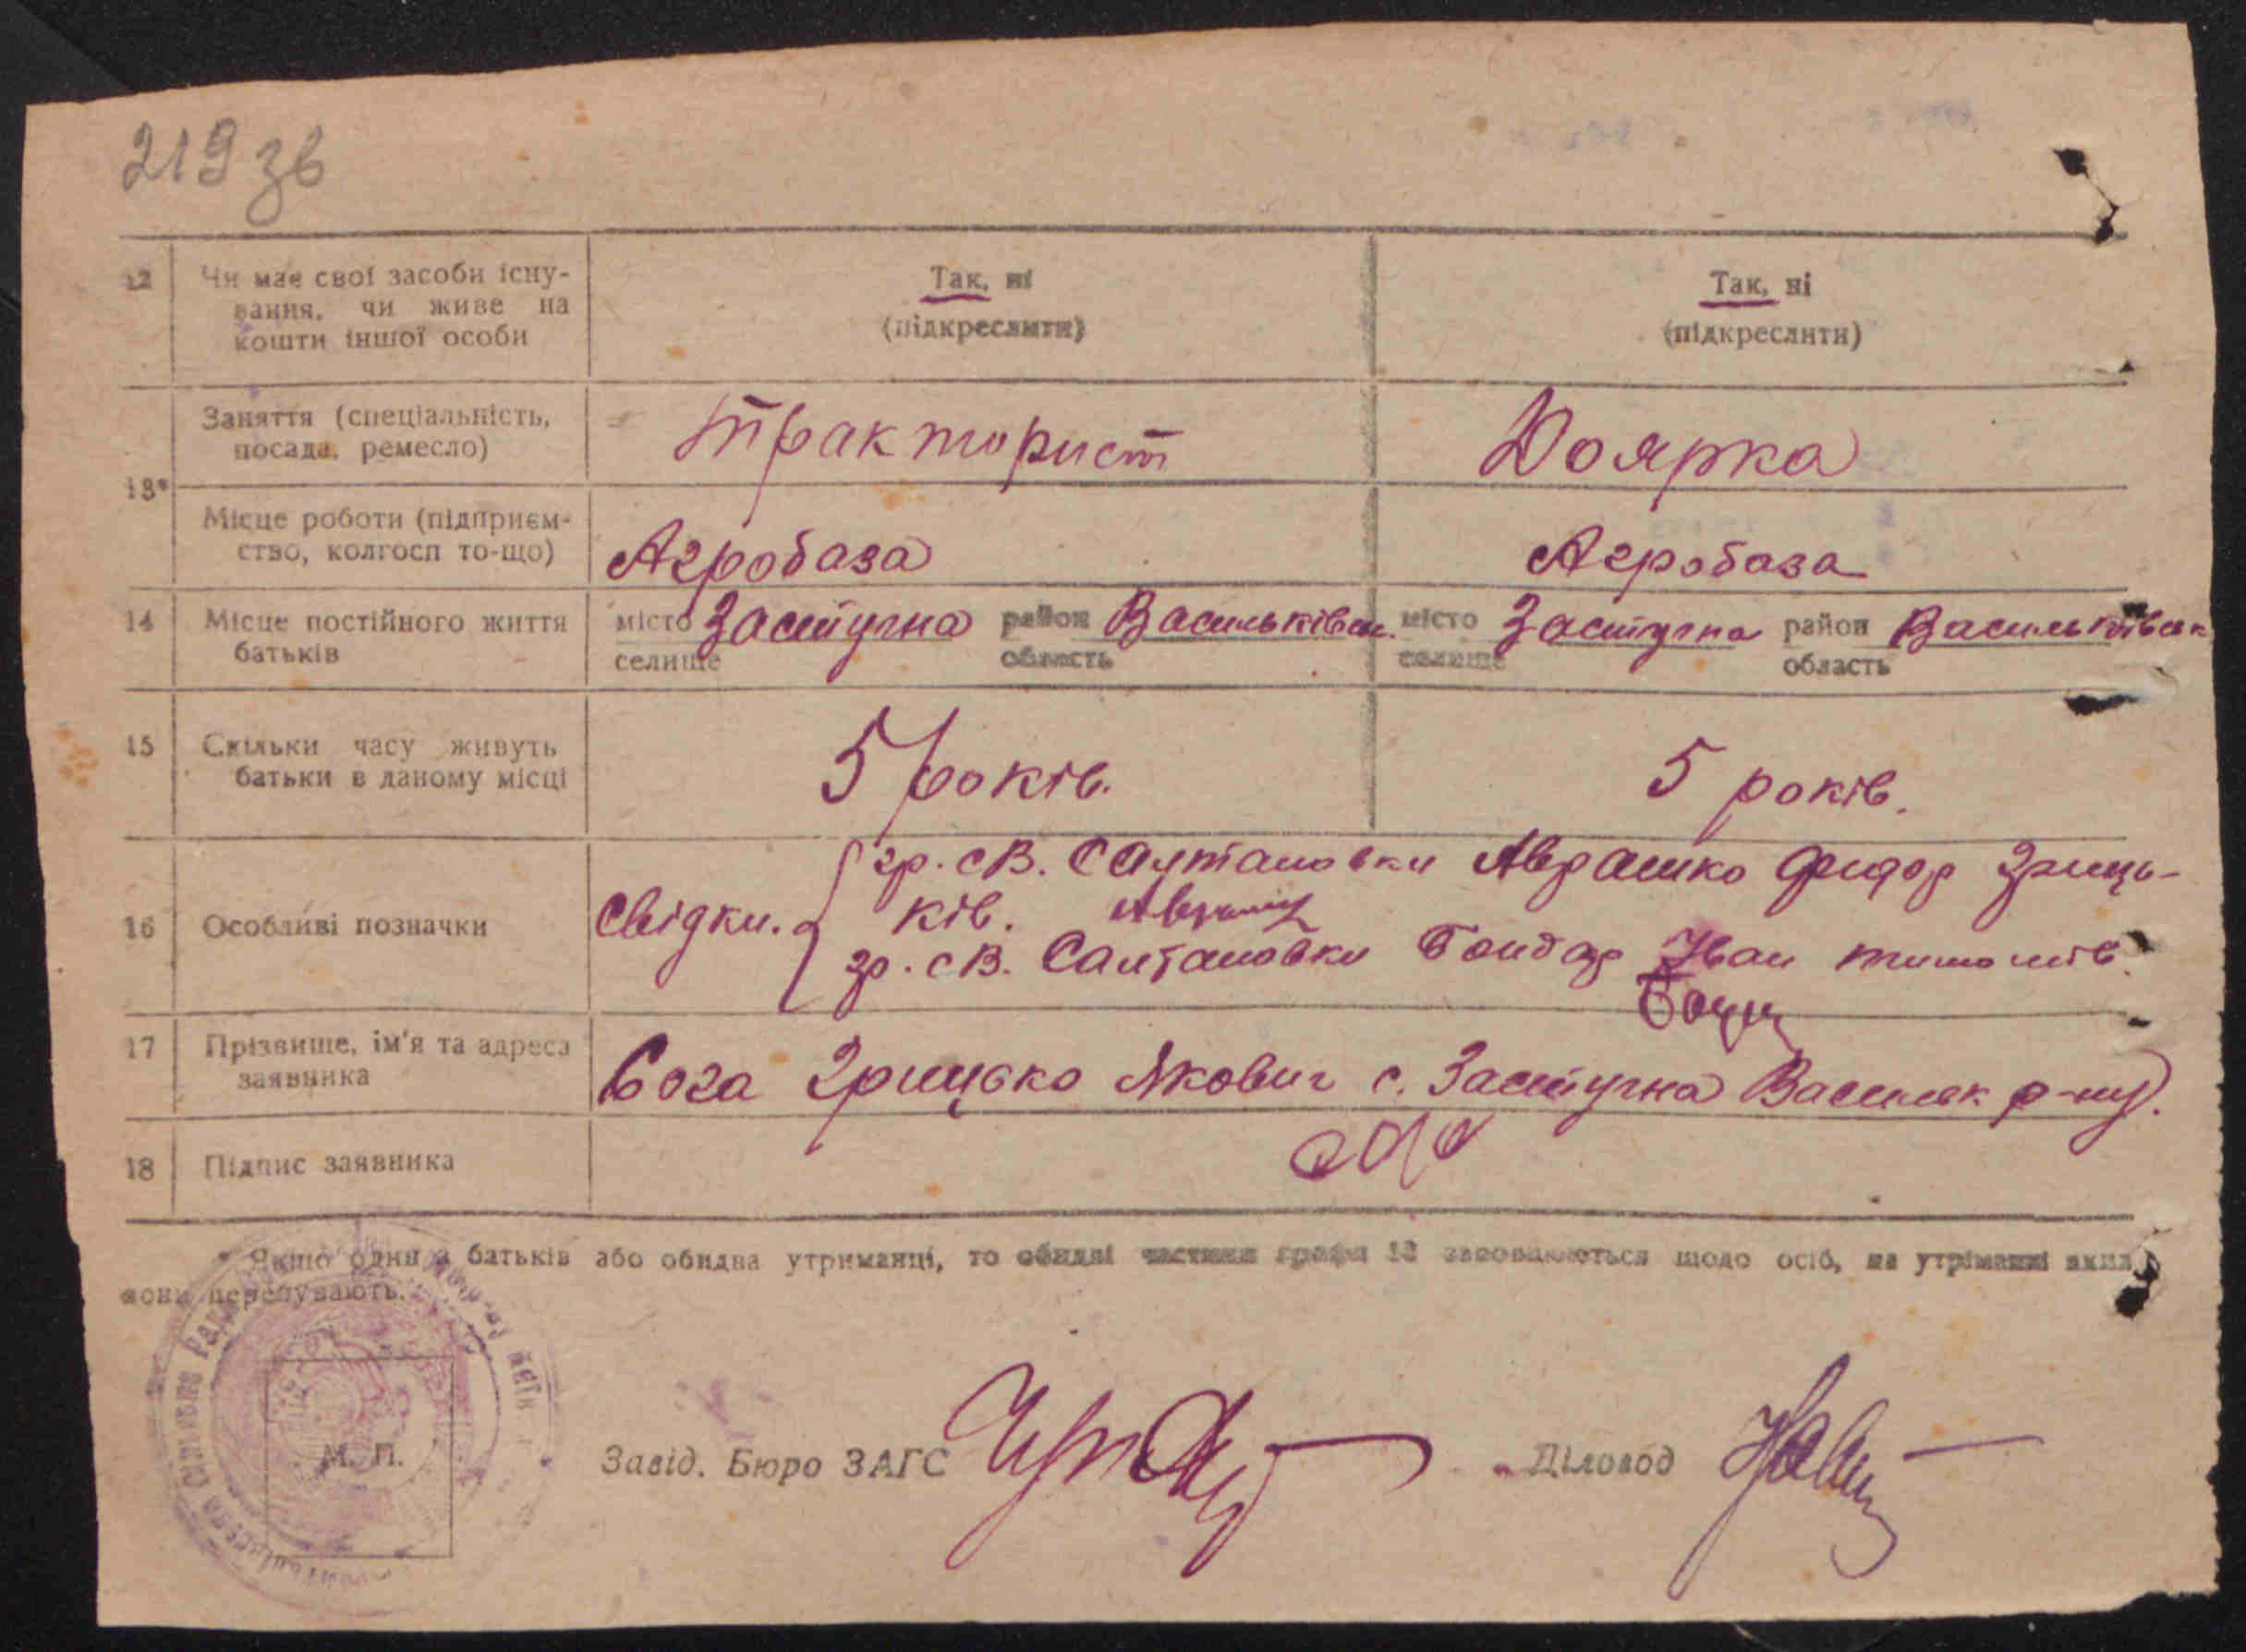 219 зв
12 Чи має свої засоби існу-
вання, чи живе на
кошти іншої особи
Так, ні
(підкреслити)
Так, ні
(підкреслити)
13*
Заняття (спеціальність,
посада, ремесло)
Тракторист
Доярка
Місце роботи (підприєм-
ство, колгосп то-що)
Агробаза
Агробаза
14 Місце постійного життя
батьків
місто Застугна район Васильківськ.
селище область
місто Застугна район Васильківськ
селище область
15 Скільки часу живуть
батьки в даному місці
5 років.
5 років.
16 Особливі позначки
Свідки.
гр. с В. Салтановки Аврашко Фидор Гриць-
ків.
гр. с В. Салтановки Бондар Іван
17 Прізвище, ім'я та адреса
заявника
Грицько Якович с. Застугна Васильк р-ну.
18 Підпис заявника
* Якщо один з батьків або обидва утриманці, то обидві частини графи 13 заповнюються щодо осіб, на утриманні яких
вони перебувають.
М. П.
Завід. Бюро ЗАГС
Діловод